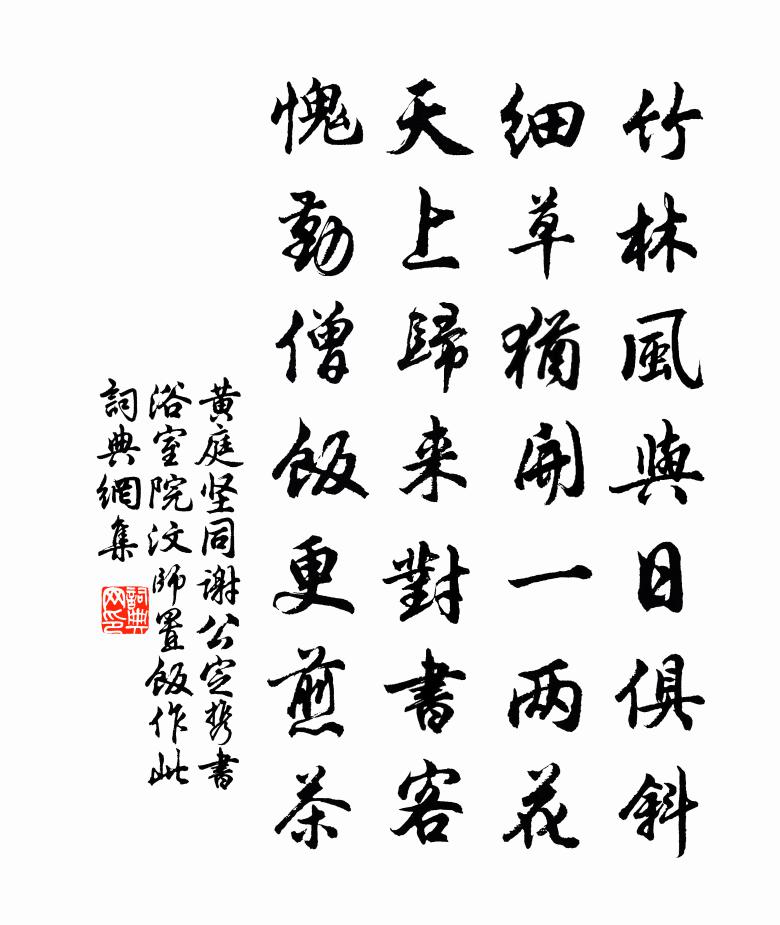 竹林風與日俱斜
細草猶開一两花
天上歸来對書客
愧勤僧飯更煎茶
黄庭坚同谢公定携書
浴室院汶師置飯作此
詞典網集
詞典
网印